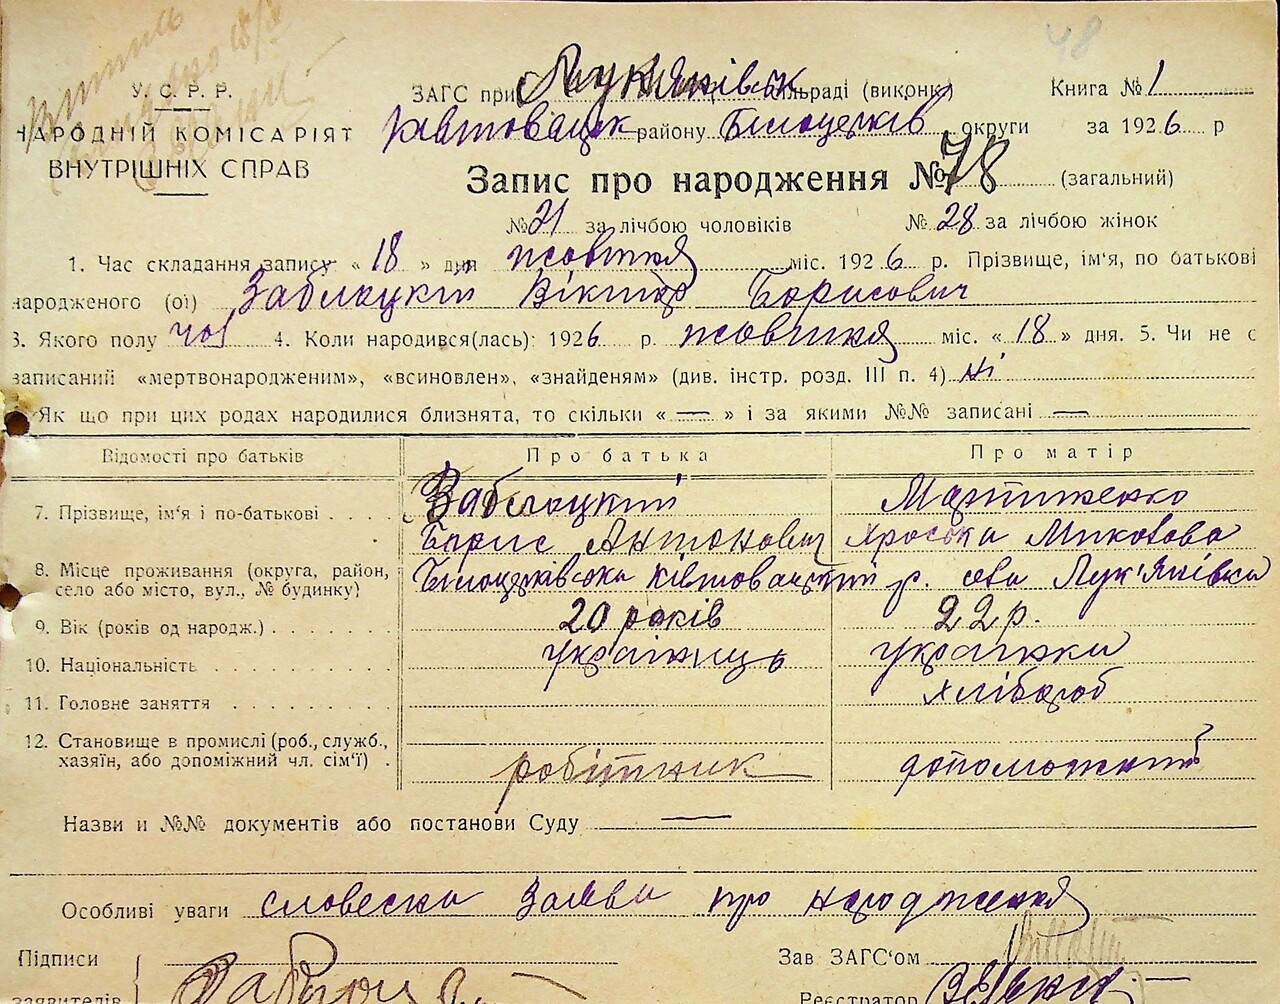 48
У.С.Р.Р.
НАРОДНІЙ КОМІСАРІЯТ
ВНУТРІШНІХ СПРАВ
ЗАГС при Лук'янівськ сільраді (виконк) Книга № 1
Ківшовацьк району Білоцерків округи за 1926 р
Запис про народження № 78 (загальний)
№ 21 за лічбою чоловіків № 28 за лічбою жінок
1. Час складання запису « 18 » дня жовтня міс. 1926 р. Прізвище, ім'я, по батькові
народженого (ої) Заблоцкий Віктор Борисович
3. Якого полу чол 4. Коли народився(лась): 1926 р. жовтня міс. « 18 » дня. 5. Чи не є
записаний «мертвонародженим», «всиновлен», «знайденям» (див. інстр. розд. III п. 4) ні
Як що при цих родах народилися близнята, то скільки « — » і за якими №№ записані —
Відомості про батьків Про батька Про матір
7. Прізвище, ім'я і по-батькові Заблоцкий Борис Антонович Мартиненко Хроська Миколова
8. Місце проживання (округа, район, село або місто, вул., № будинку) Білоцерківська Ківшовацкий р. село Лук'янівка
9. Вік (років од народж.) 20 років 22 р.
10. Національність українець українка
11. Головне заняття хлібороб
12. Становище в промислі (роб., служб., хазяїн, або допоміжний чл. сім'ї) робітник допоможний
Назви и №№ документів або постанови Суду —
Особливі уваги словесна заява про народження
Підписи
заявителів
Зав ЗАГС'ом
Реєстратор